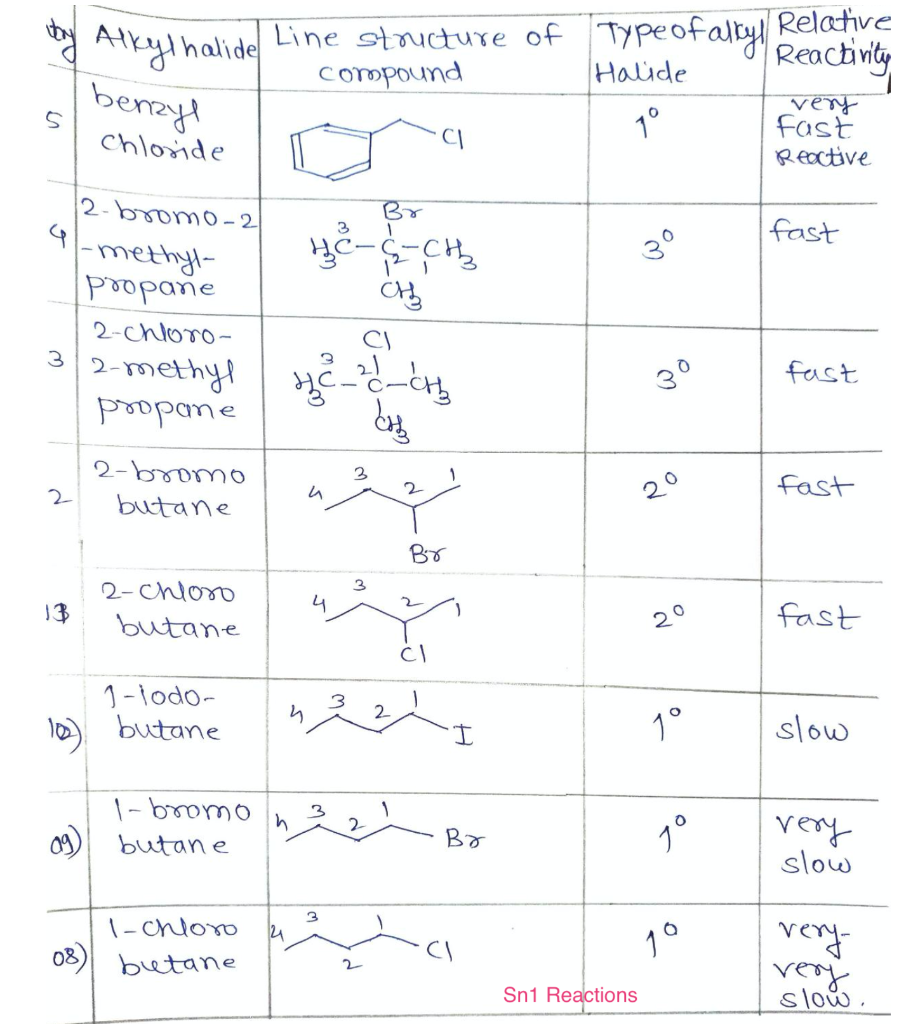 try Alkyl halide Line structure of compound Type of alkyl Halide Relative Reactivity
5 benzyl chloride Cl 1° very fast Reactive
4 2-bromo-2-methyl-propane Br H3C-C-CH3 CH3 3 2 1 3° fast
3 2-chloro-2-methyl propane Cl H3C-C-CH3 CH3 3 2 1 3° fast
2 2-bromo butane 4 3 2 1 Br 2° fast
13 2-chloro butane 4 3 2 1 Cl 2° fast
10) 1-iodo-butane 4 3 2 1 I 1° slow
09) 1-bromo butane 4 3 2 1 Br 1° very slow
08) 1-chloro butane 4 3 2 1 Cl 1° very-very slow.
Sn1 Reactions